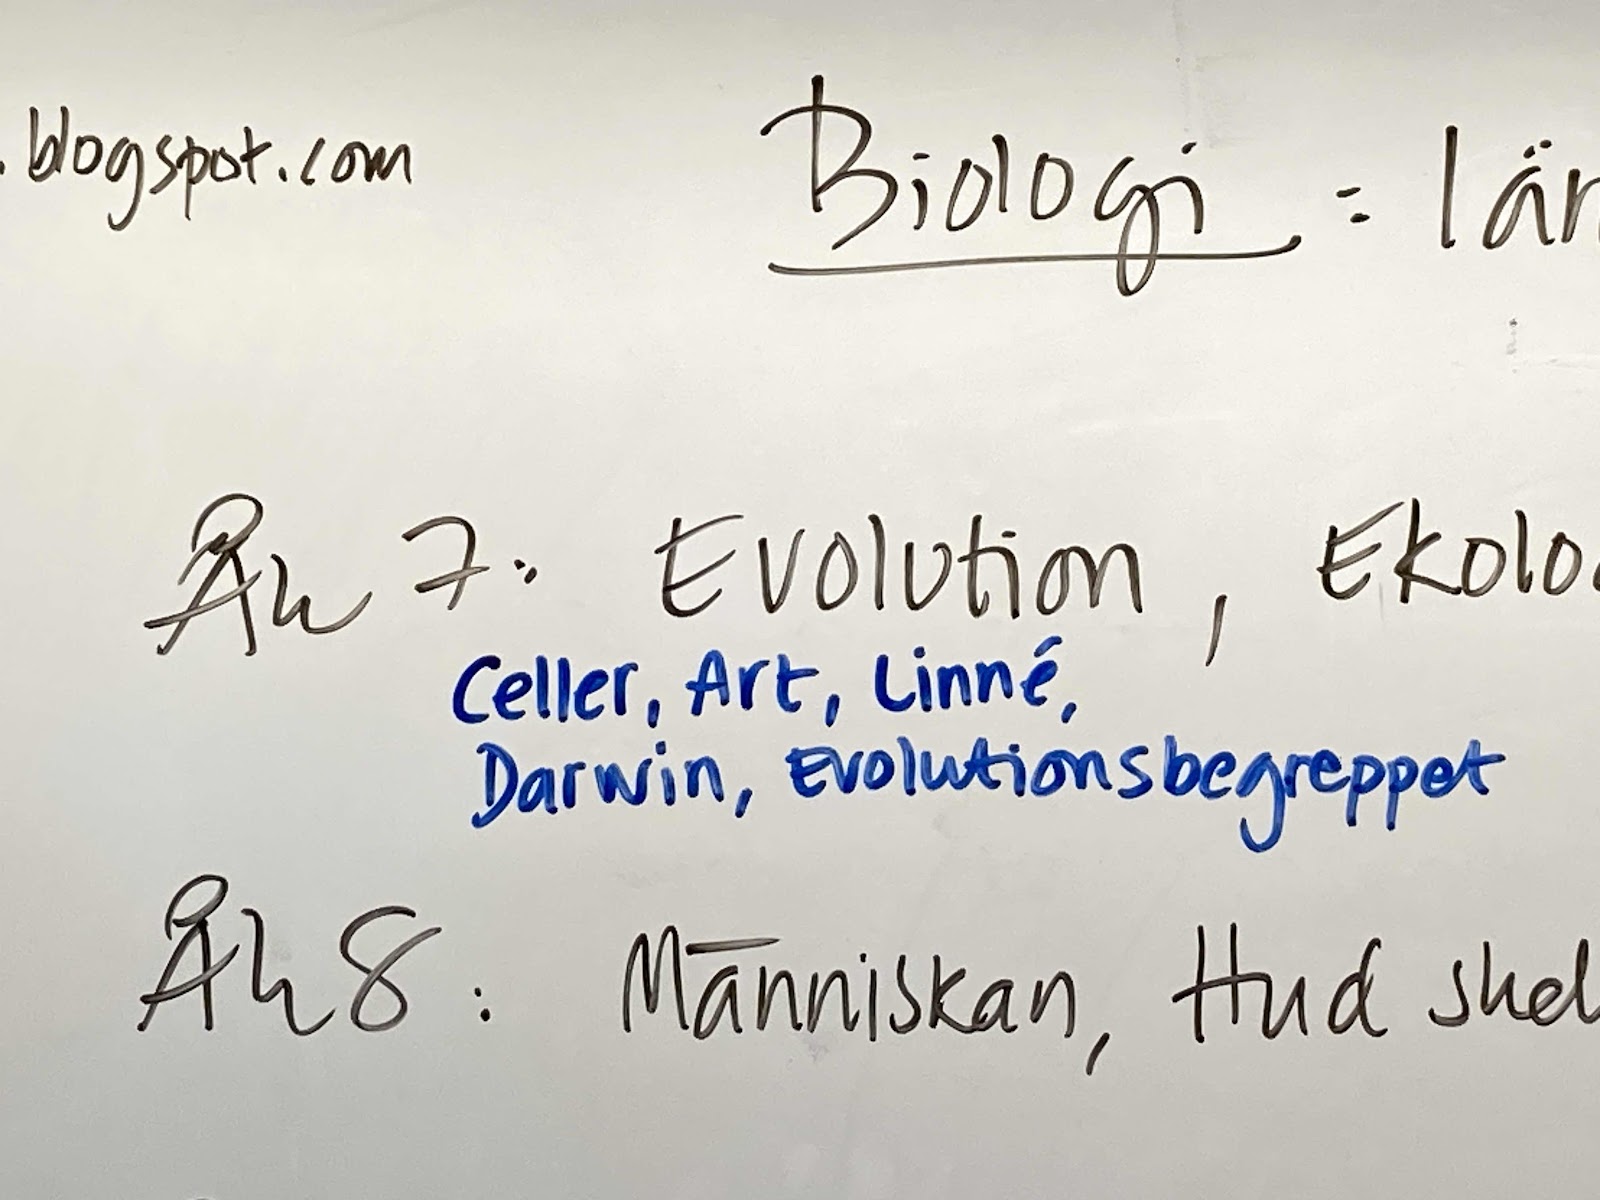 .blogspot.com
Biologi = lär
Åk 7: Evolution, Ekolo
Celler, Art, Linné,
Darwin, Evolutionsbegreppet
Åk 8: Människan, Hud skel